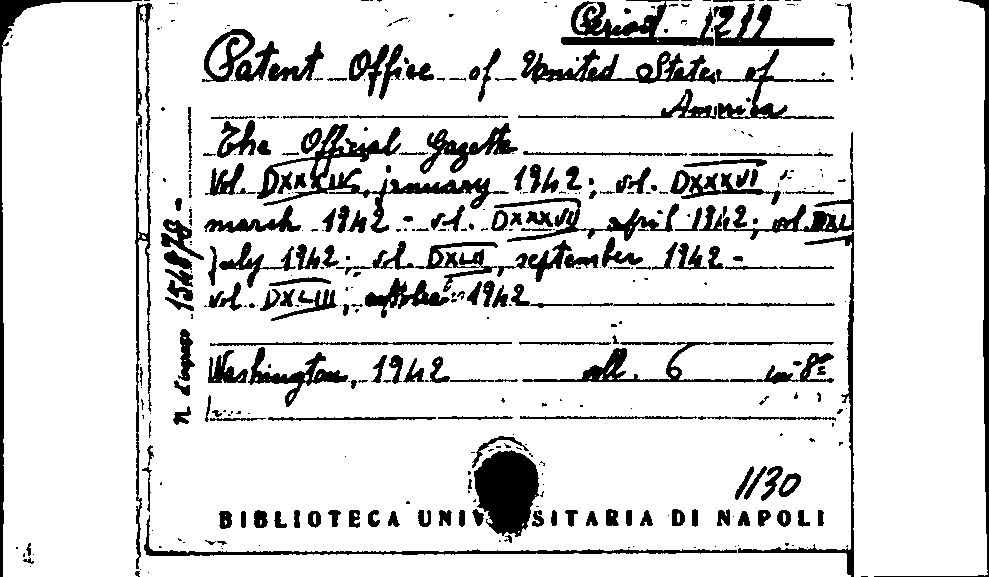 Period. 1219
Patent Office of United States of
America
The Official Gazette
Vol. DXXXIV, january 1942; vol. DXXXVI,
march 1942 - vol. DXXXVII, april 1942; vol. DXL
july 1942; vol. DXLII, september 1942 -
vol. DXLIII, 1942.
Washington, 1942 voll. 6 in-8º
n. d'ingresso 154878 -
1130
BIBLIOTECA UNIV SITARIA DI NAPOLI